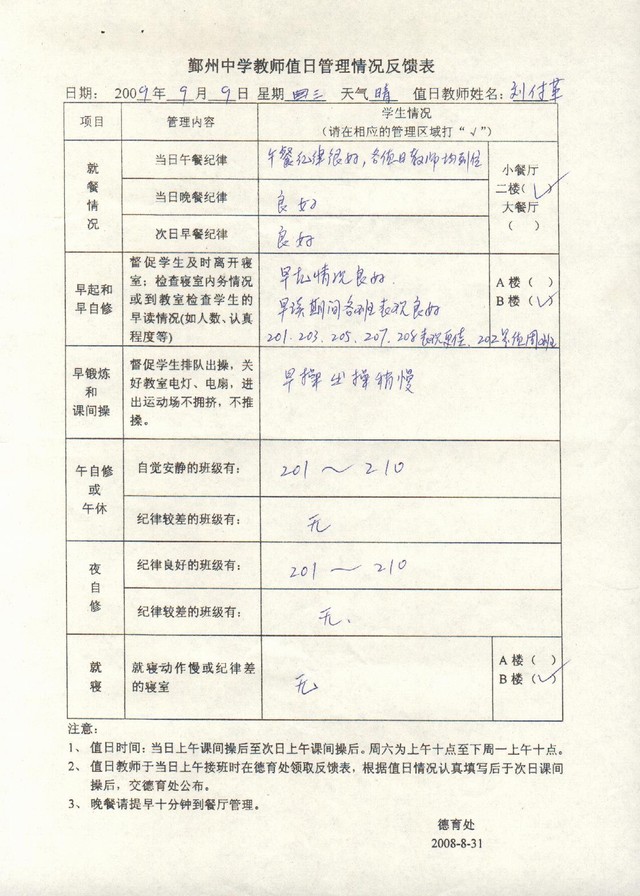 鄞州中学教师值日管理情况反馈表
日期： 2009年 9月 9日 星期 三 天气 晴 值日教师姓名：刘付革
项目 管理内容 学生情况
（请在相应的管理区域打“√”）
就餐情况
当日午餐纪律 午餐纪律很好，各值日教师均到位
当日晚餐纪律 良好
次日早餐纪律 良好
小餐厅
二楼（√）
大餐厅
（ ）
早起和
早自修
督促学生及时离开寝
室；检查寝室内务情况
或到教室检查学生的
早读情况(如人数、认真
程度等)
早起情况良好.
早读期间各班表现良好
201.203.205.207.208表现更佳.202
A楼（ ）
B楼（√）
早锻炼
和
课间操
督促学生排队出操，关
好教室电灯、电扇，进
出运动场不拥挤，不推
搡。
早操出操稍慢
午自修
或
午休
自觉安静的班级有： 201～210
纪律较差的班级有： 无
夜自修
纪律良好的班级有： 201～210
纪律较差的班级有： 无.
就寝
就寝动作慢或纪律差
的寝室
无
A楼（ ）
B楼（√）
注意：
1、 值日时间：当日上午课间操后至次日上午课间操后。周六为上午十点至下周一上午十点。
2、 值日教师于当日上午接班时在德育处领取反馈表，根据值日情况认真填写后于次日课间
操后，交德育处公布。
3、 晚餐请提早十分钟到餐厅管理。
德育处
2008-8-31